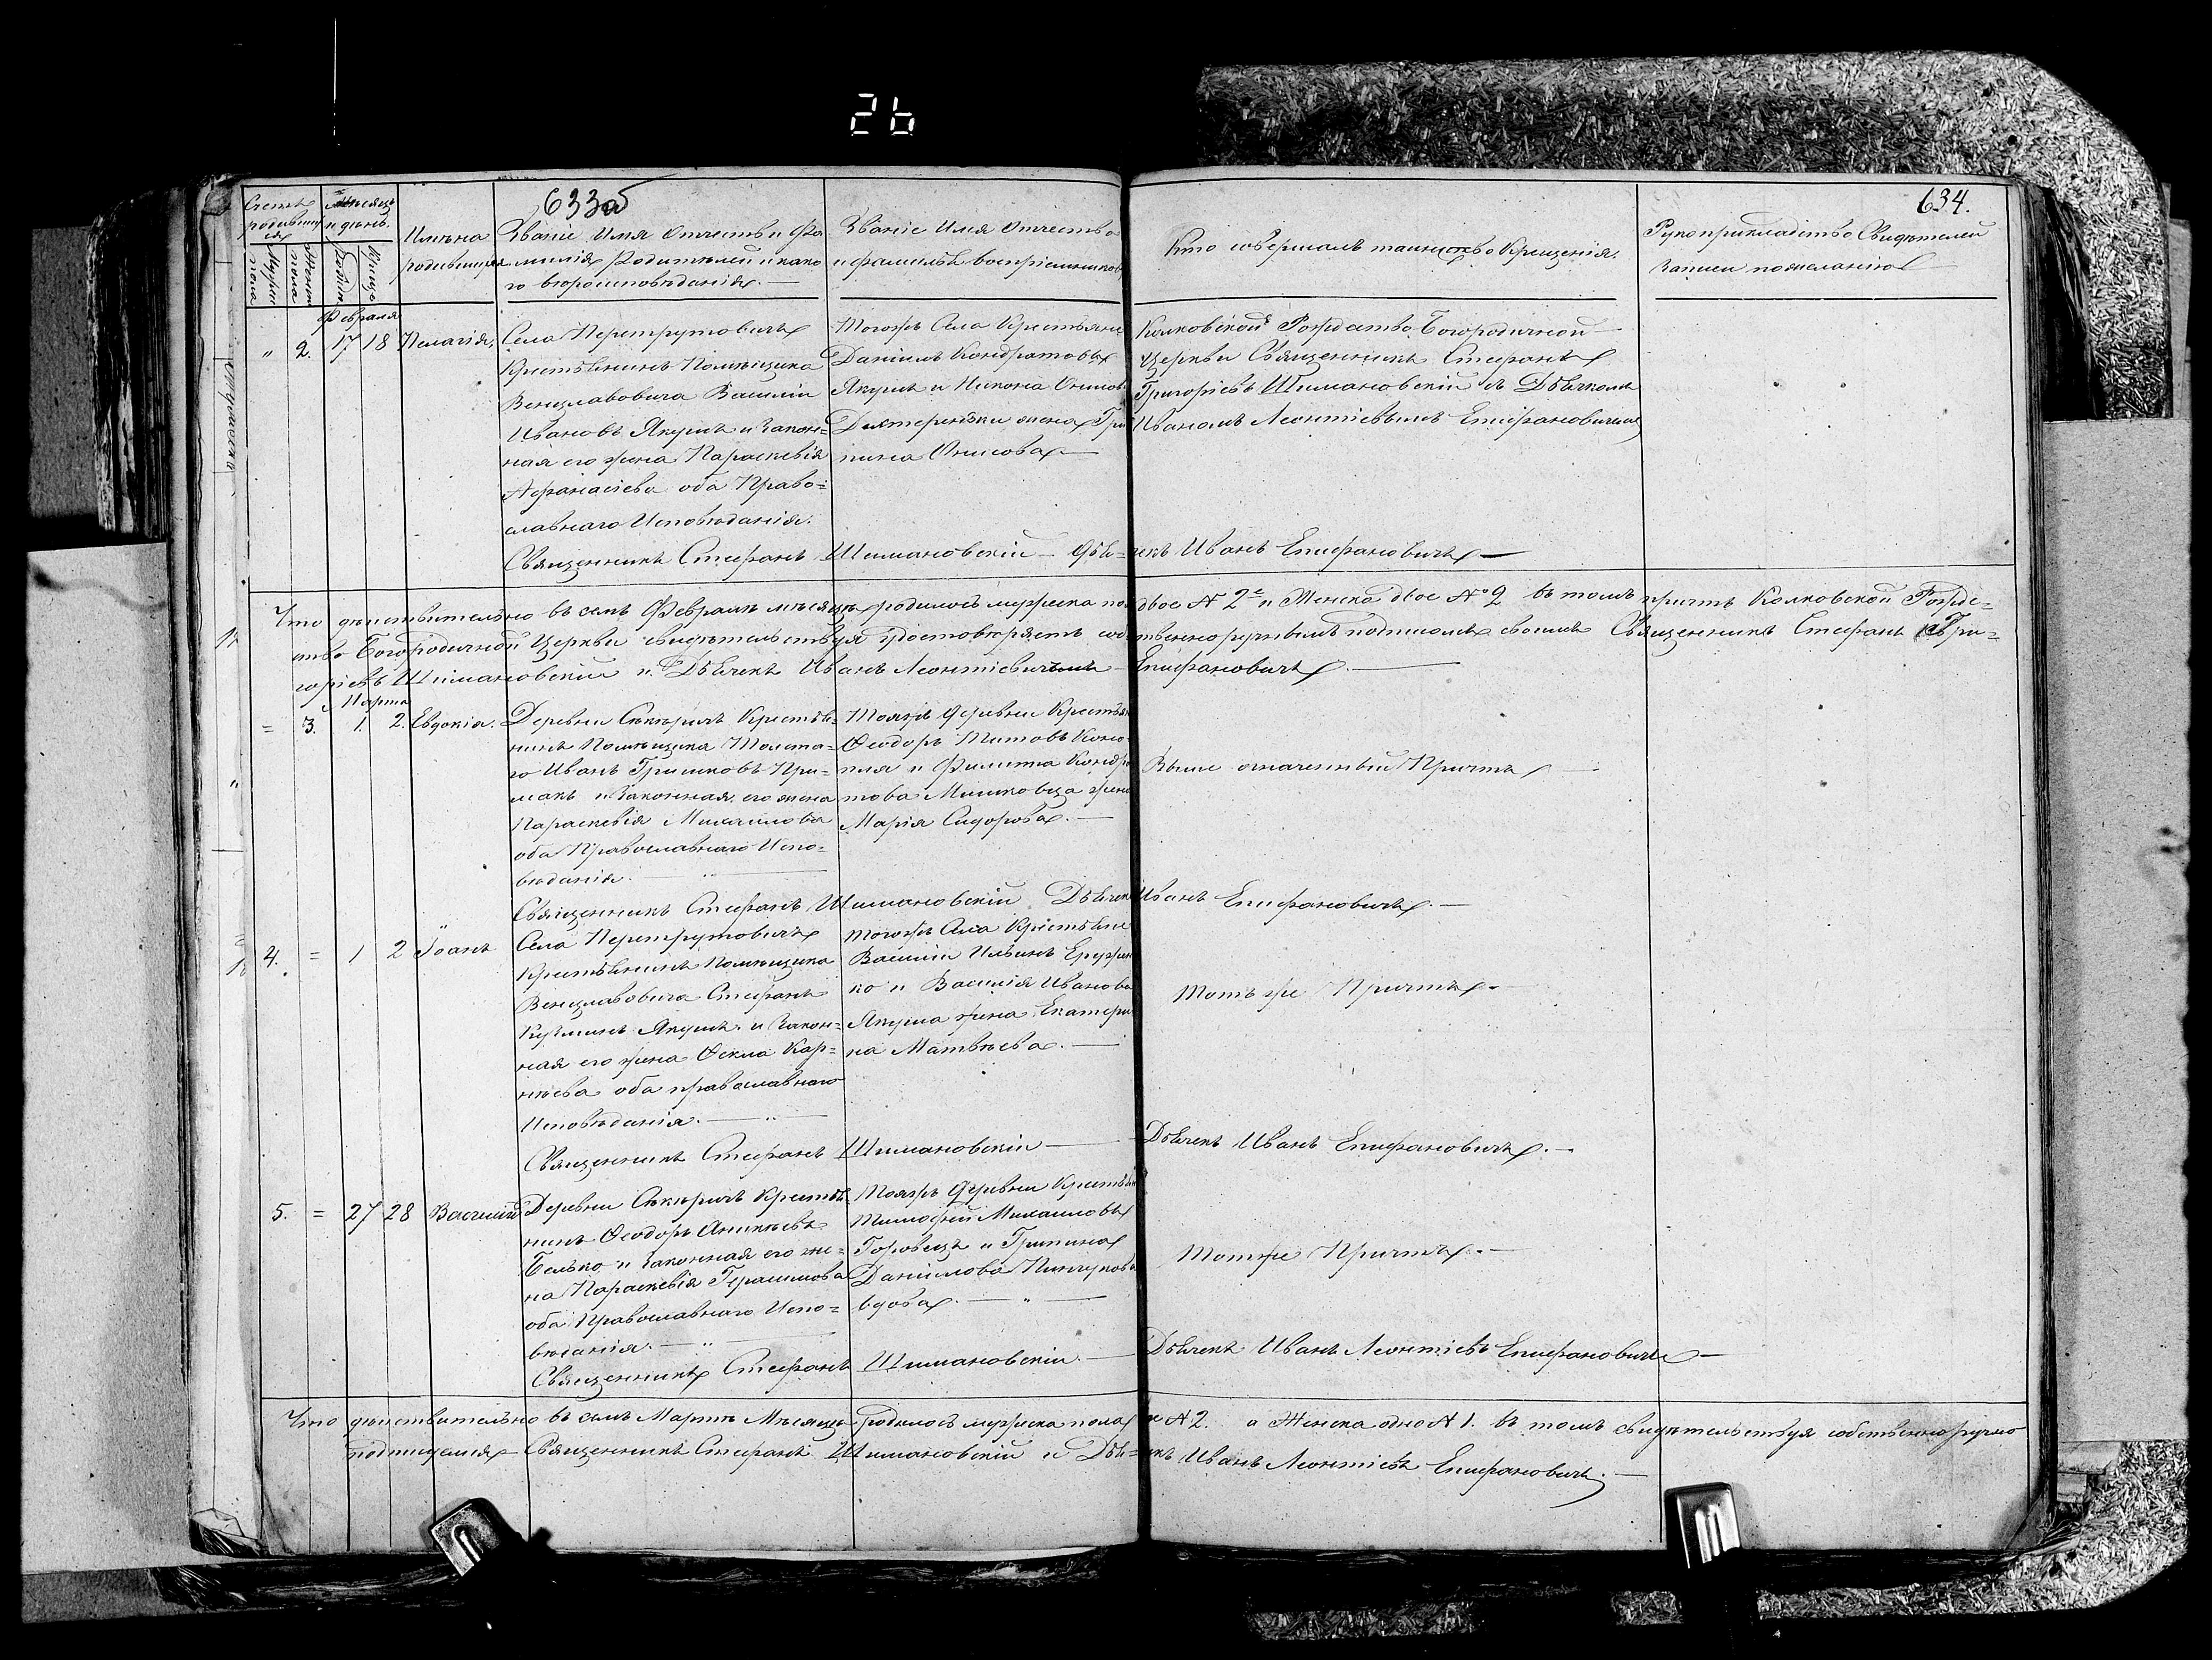 26
633 об
634.
Счетъ родившихся
Мѣсяцъ и день.
Имѣна родившихся
Званіе Имя Отчество и Фа
милія Родителей и како
го вѣроисповѣданія. —
Званіе Имя Отчество
и фамилія воспріемниковъ
Кто совѣршалъ таинство Крещенія.
Рукоприкладство Свидѣтелей
записи по желанію
Мужеск пола
Женск пола
Рожден
Креще
Февраля
" 2. 17 18 Пелагія,
Села Перетрутовичъ
Крестьянинъ Помѣщика
Венцлавовича Василій
Ивановъ Якушъ и Закон=
ная его жена Параскевія
Афанасіева оба Право=
славнаго Исповѣданія.
Тогожъ Села Крестьяне
Даніилъ Кондратовъ
Якушъ и Никона
жена Гри
пина Онисова —
Колковской Рождество Богородичной
Церкви Священникъ Стефанъ
Григоріевъ Шимановскій съ Дьячкомъ
Иваномъ Леонтіевымъ Епифановичемъ
Священникъ Стефанъ Шимановскій — Дьячекъ Иванъ Епифановичъ —
Что дѣйствительно въ семъ Февралѣ мѣсяцѣ родилось мужеска пола двое № 2е и Женска двое № 2 въ томъ причтъ Колковской Рожде=
ство Богородичной Церкви свидѣтельствуя удостовѣряетъ собственноручнымъ подписомъ своимъ Священникъ Стефанъ Гри=
горіевъ Шимановскій и Дьячекъ Иванъ Леонтіевичъ Епифановичъ. —
Марта
= 3. 1. 2. Евдокія.
Деревни Сѣкиричъ Крестья=
нинъ Помѣщика Толста=
го Иванъ Гришковъ При=
макъ и Законная его жена
Параскевія Михаилова
оба Православнаго Испо=
вѣданія. — " —
Тояжъ деревни Крестьяне
Феодоръ Титовъ Коно=
пля и Филиппа Кондра
това Мишковца жена
Марія Сидорова. —
Выше означенный Причтъ —
Священникъ Стефанъ Шимановскій Дьячекъ Иванъ Епифановичъ. —
4. = 1 2 Іоанъ
Села Перетрутовичъ
Крестьянинъ Помѣщика
Венцлавовича Стефанъ
Кузминъ Якушъ и Закон=
ная его жена Фекла Кор=
нѣева оба православнаго
Исповѣданія. — " —
Тогожъ Села Крестьяне
Василій Ильинъ
ко и Василія Иванова
Якуша жена Екатери
на Матвѣева. —
Тотъ же Причтъ. —
Священникъ Стефанъ Шимановскій — Дьячекъ Иванъ Епифановичъ. —
5. = 27 28 Василій
Деревни Сѣкиричъ Крестья=
нинъ Феодоръ Аникѣевъ
Белько и Законная его же=
на Параскевія Герасимова
оба Православнаго Испо=
вѣданія. — " —
Тояжъ деревни Крестьяне
Тимофей Михаиловъ
Горовецъ и Грипина
Даніилова Пинчукова
вдова. — " —
Тотже Причтъ. —
Священникъ Стефанъ Шимановскій. — Дьячекъ Иванъ Леонтіевъ Епифановичъ —
Что дѣйствительно въ семъ Мартѣ Мѣсяцѣ родилось мужеска пола № 2. а Женска одно № 1. въ томъ свидѣтельствуя собственноручно
подписуемся Священникъ Стефанъ Шимановскій и Дьячекъ Иванъ Леонтіевъ Епифановичъ. —